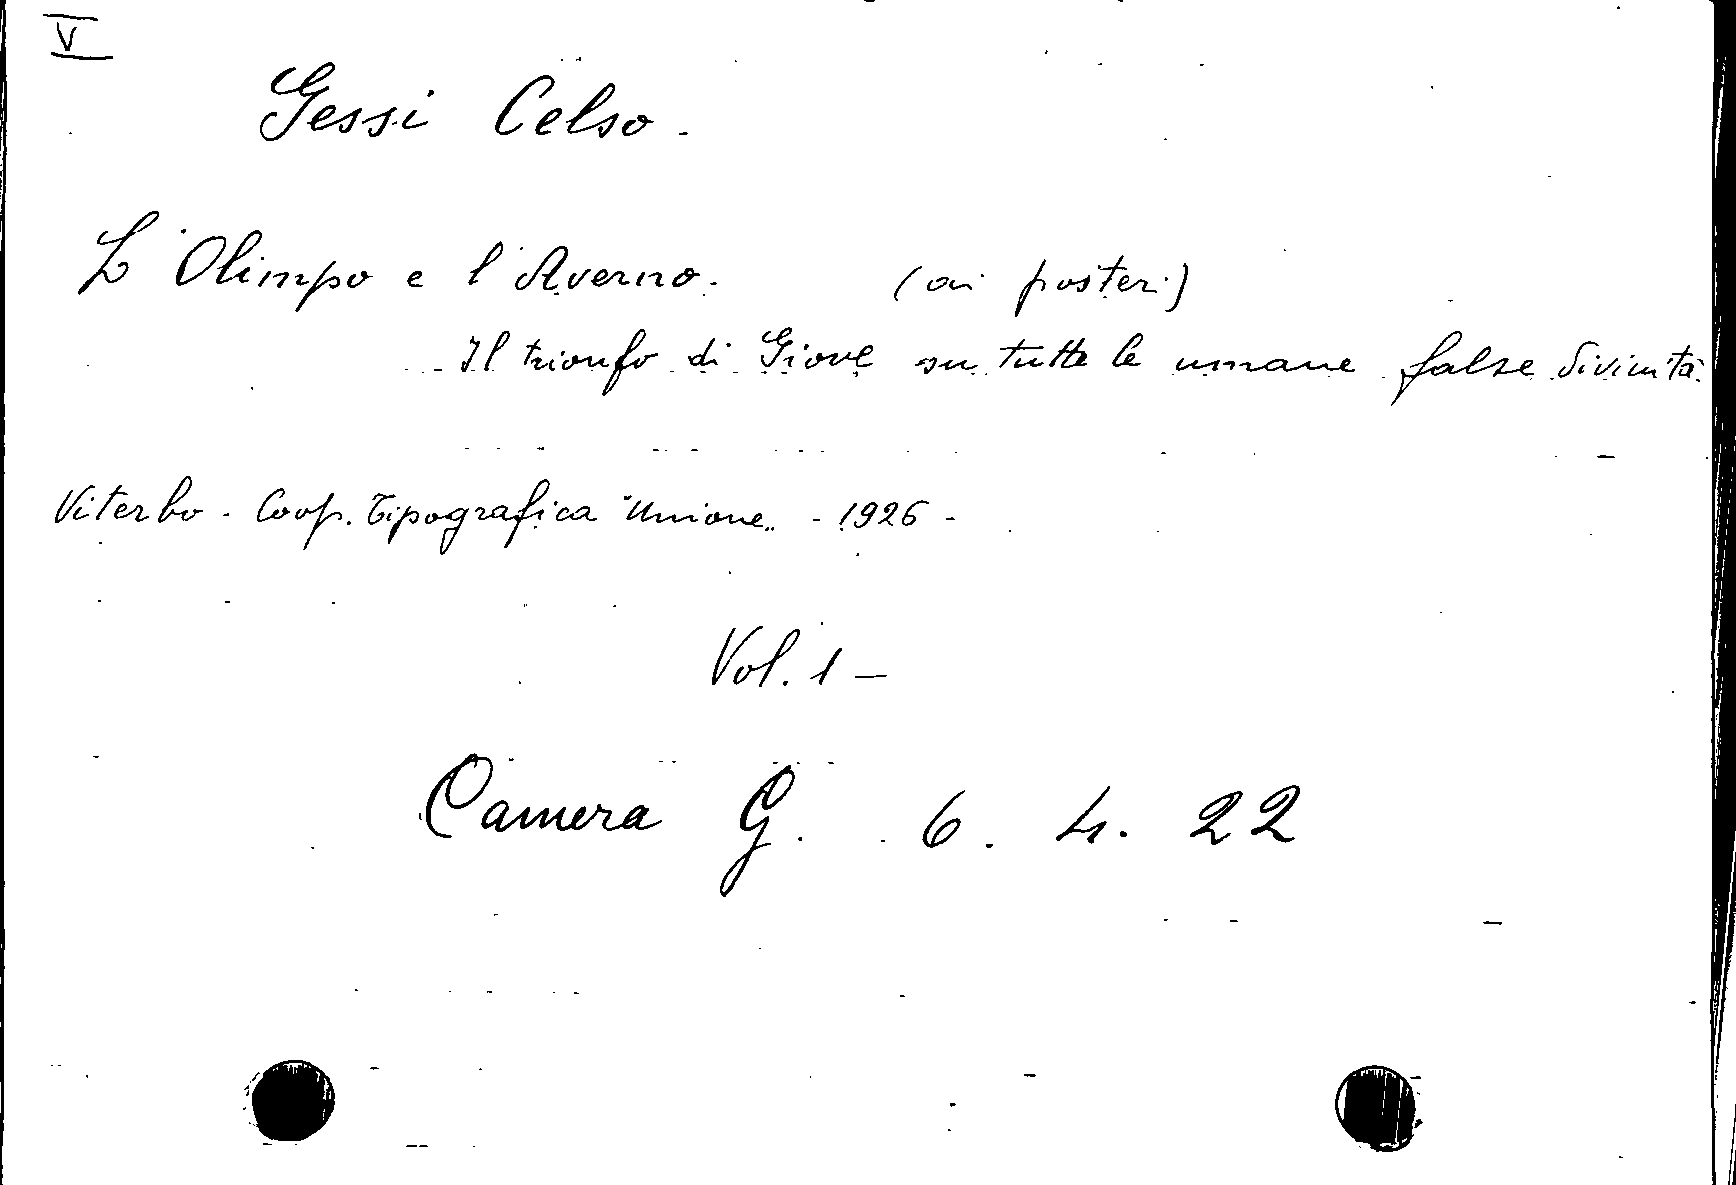 V
Gessi Celso.
L'Olimpo e l'Averno. (ai posteri)
Il trionfo di Giove su tutte le umane false divinità.
Viterbo - Coop. Tipografica "Unione" - 1926 -
Vol. 1 -
Camera G. 6. 4. 22